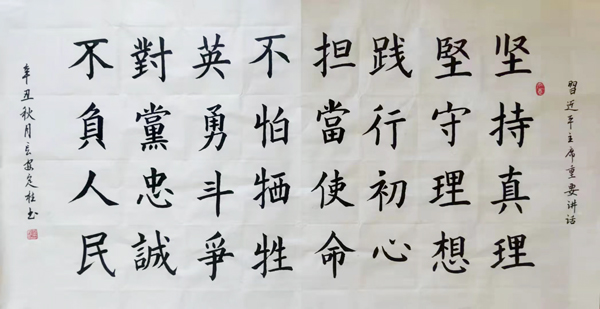 習近平主席重要讲话
坚持真理
堅守理想
践行初心
担當使命
不怕牺牲
英勇斗爭
對黨忠誠
不負人民
辛丑秋月